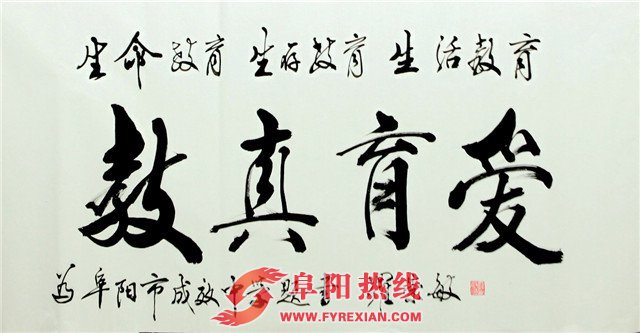 生命教育 生存教育 生活教育
教真育爱
为阜阳市成效中学题书 罗崇敏
阜阳热线
WWW.FYREXIAN.COM